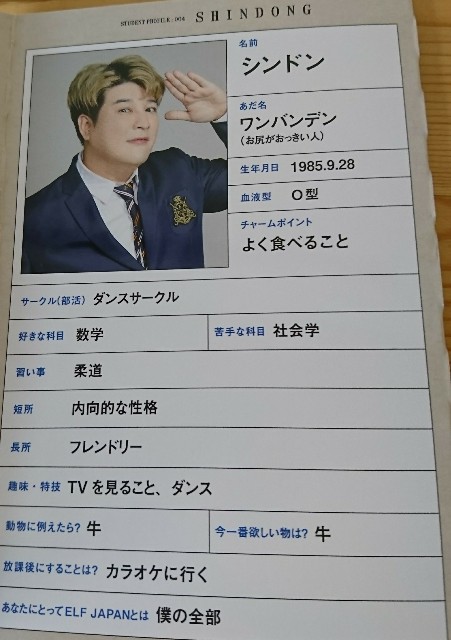 STUDENT PROFILE : 004 SHINDONG
名前
シンドン
あだ名
ワンバンデン
(お尻がおっきい人)
生年月日 1985.9.28
血液型 O型
チャームポイント
よく食べること
サークル(部活) ダンスサークル
好きな科目 数学 苦手な科目 社会学
習い事 柔道
短所 内向的な性格
長所 フレンドリー
趣味・特技 TVを見ること、ダンス
動物に例えたら? 牛 今一番欲しい物は? 牛
放課後にすることは? カラオケに行く
あなたにとってELF JAPANとは 僕の全部